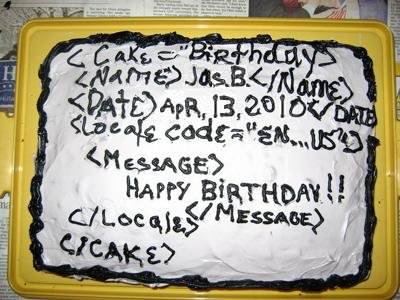 < Cake = "Birthday>
<NAME> Jas. B. </NAME>
<DATE> APR, 13, 2010 </DATE
<Locale code="EN...US">
<MESSAGE>
HAPPY BIRTHDAY!!
</MESSAGE>
</Locale>
</CAKE>